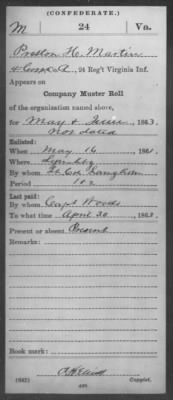 (CONFEDERATE.)
M 24 Va.
Preston H. Martin
Co. A, 24 Reg't Virginia Inf.
Appears on
Company Muster Roll
of the organization named above,
for May & June 1863.
Not dated
Enlisted:
When May 16 186
Where Lynchbg
By whom Lt Col Langhorn
Period
Last paid:
By whom Capt Woods
To what time April 30 186
Present or absent Present
Remarks:
Book mark:
(642) Copyist.